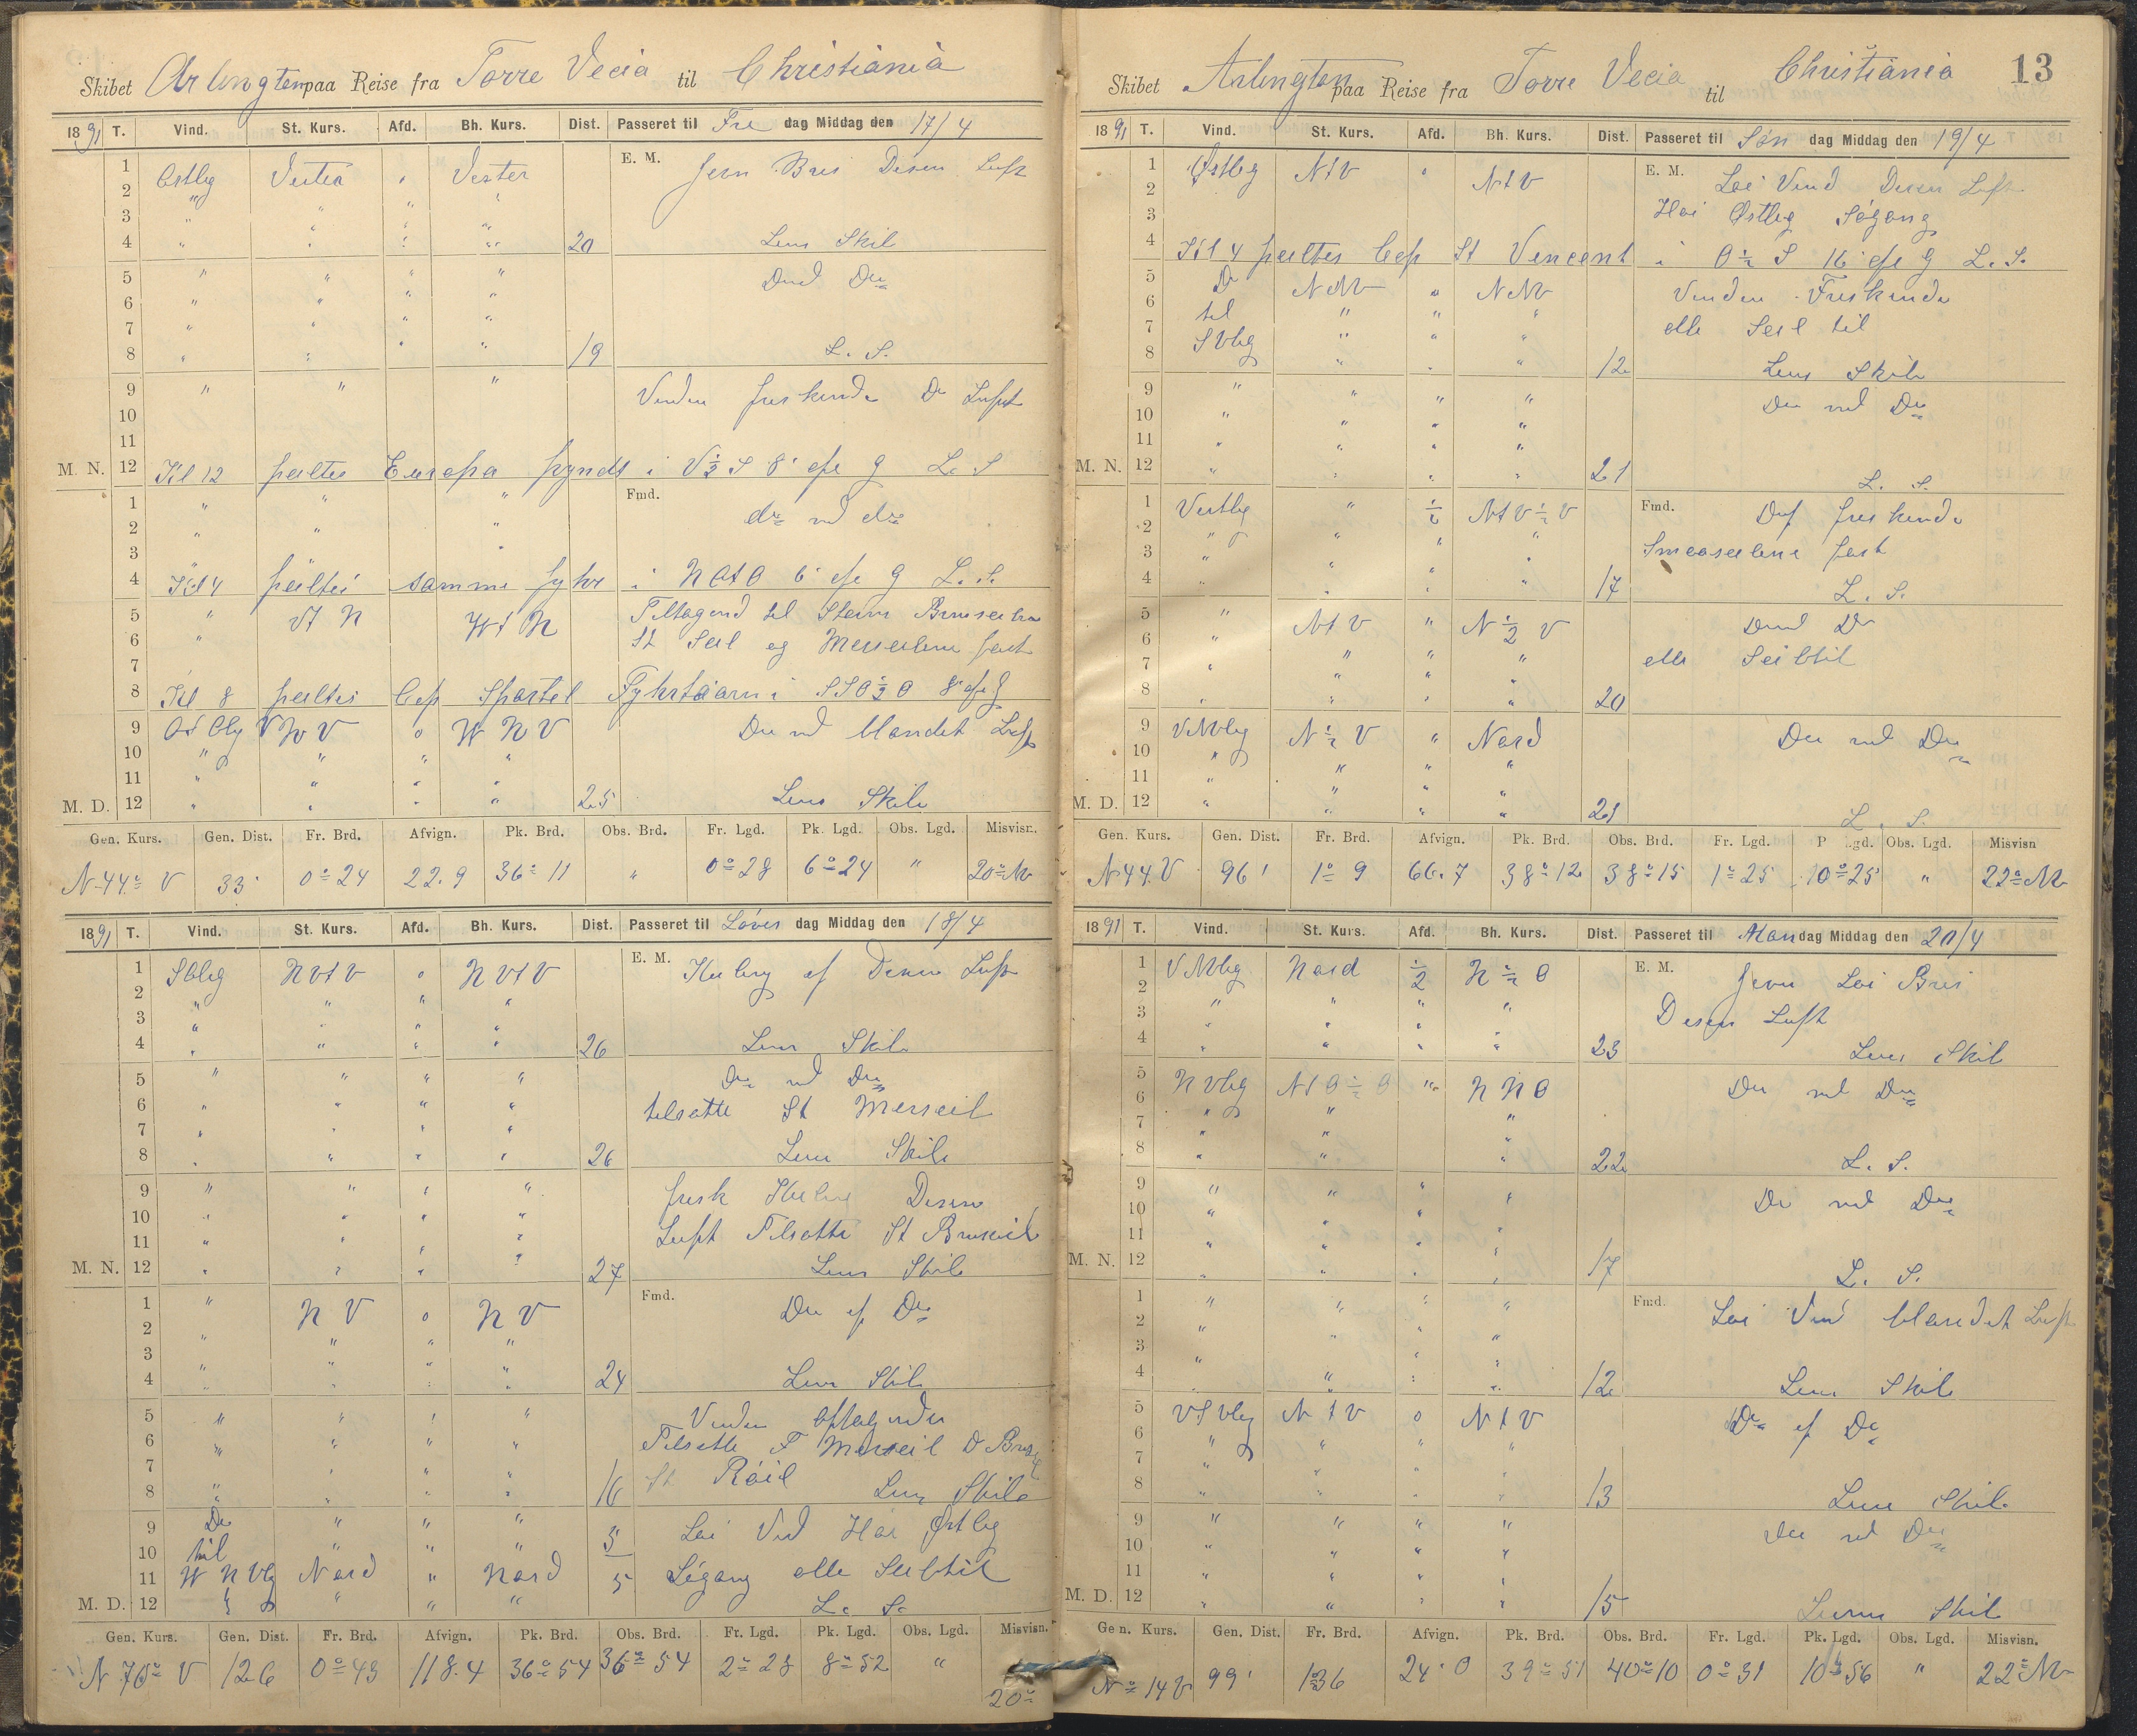 Skibet Arlington paa Reise fra Torre Vecia til Christiania
1891 T. Vind. St. Kurs. Afd. Bh. Kurs. Dist. Passeret til Fre dag Middag den 17/4
1 Ostlig Vester " Vester E. M. Jevn Bris Disen Luft
2 " " " "
3 " " " "
4 " " " " 20 Lens Skib
5 " " " " Do
6 " " " "
7 " " " "
8 " " " " 19 L. S.
9 " " " Vinden friskende Do Luft
10
11
M. N. 12 Kl 12 peiltes Europa pyndt i V½S 8' L. S
1 " " " Fmd. do md do
2 " " "
3 "
4 Kl 4 peiltes samme fyhr i NOtO 6' L. S.
5 " Vt N Wt N Tiltagend til
6 " St Seil og fast
7
8 Kl 8 peiltes Cap Spartel Fyhrtaarn i SSO½O 8'
9 WNV o WNV Do md blandet Luft
10 " " " "
11 " " " "
M. D. 12 " " " " 25 Lens Skib
Gen. Kurs. Gen. Dist. Fr. Brd. Afvign. Pk. Brd. Obs. Brd. Fr. Lgd. Pk. Lgd. Obs. Lgd. Misvisn.
N 44° V 33' 0° 24 22.9 36° 11 " 0° 28 6° 24 " 20°
1891 T. Vind. St. Kurs. Afd. Bh. Kurs. Dist. Passeret til Løver dag Middag den 18/4
1 NVtV o NVtV E. M. Kuling af Disen Luft
2 " " " "
3 " " " "
4 " " " " 26 Lens Skib
5 " " " " Do md Do
6 " " " " tilsatte St Merseil
7 " " " "
8 " " " " 26 Lens Skib
9 " " " " frisk Kuling Disen
10 " " " " Luft Tilsatte St
11 " " " "
M. N. 12 " " " " 27 Lens Skib
1 " N V o N V Fmd. Do af Do
2 " " " "
3 " " " "
4 " " " " 24 Lens Skib
5 " " " " Vinden
6 " " " " Tilsatte F Merseil
7 " " " " St
8 " " " " 16 Lens Skib
9 Do " " " 5 Loi Vind Hoi Østlig
10 til " " "
11 W N Vlig Nord " Nord 5 Søgang alle Seil til
M. D. 12 " " " L. S.
Gen. Kurs. Gen. Dist. Fr. Brd. Afvign. Pk. Brd. Obs. Brd. Fr. Lgd. Pk. Lgd. Obs. Lgd. Misvisn.
N 70° V 126 0° 43 118.4 36° 54 36° 54 2° 28 8° 52 " 20°
Skibet Arlington paa Reise fra Torre Vecia til Christiania 13
1891 T. Vind. St. Kurs. Afd. Bh. Kurs. Dist. Passeret til Søn dag Middag den 19/4
1 Østlig NtV " NtV E. M. Loi Vind Disen Luft
2 Hoi Østlig Søgang
3
4 Kl 4 peiltes Cap St Vencent i O½S 16' L. S.
5 Do NNV " NNV Vinden Friskende
6 til " " " alle Seil til
7 SVlig " " "
8 " " " 12 Lens Skib
9 " " " " Do md Do
10 " " " "
11 " " " "
M. N. 12 " " " " 21 L. S.
1 Vestlig " ½ NtV½V Fmd. friskende
2 " " " " Smaaseilene fast
3 " " " "
4 " " " " 17 L. S.
5 " NtV " N½V Do
6 " " " " alle Seil til
7 " " " "
8 " " " 20
9 VNVlig N½V " Nord Do md Do
10 " " " "
11 " " " "
M. D. 12 " " " " 21 L. S.
Gen. Kurs. Gen. Dist. Fr. Brd. Afvign. Pk. Brd. Obs. Brd. Fr. Lgd. P Lgd. Obs. Lgd. Misvisn
N 44. V 96' 1° 9 66.7 38° 12 38° 15 1° 25 10° 25 " 22°
1891 T. Vind. St. Kurs. Afd. Bh. Kurs. Dist. Passeret til Man dag Middag den 20/4
1 VNVlig Nord ½ N½O E. M. Jevn Loi Bris
2 " " " " Disen Luft
3 " " " "
4 " " " " 23 Lens Skib
5 NVlig NtO½O " NNO Do md Do
6 " " "
7 " " "
8 " " " 22 L. S.
9 " " " " Do md Do
10 " " " "
11 " " " "
M. N. 12 " " " " 17 L. S.
1 " " " " Fmd. Loi Vind blandet Luft
2 " " "
3 " " "
4 " " " 12 Lens Skib
5 VSVlig NtV o NtV Do af Do
6 " " " "
7 " " " "
8 " " " " 13 Lens Skib
9 " " " " Do md Do
10 " " " "
11 " " " "
M. D. 12 " " " " 15 Lens Skib
Gen. Kurs. Gen. Dist. Fr. Brd. Afvign. Pk. Brd. Obs. Brd. Fr. Lgd. Pk. Lgd. Obs. Lgd. Misvisn.
N° 14 V 99' 1°36 24.0 39° 51 40° 10 0° 31 10° 56 " 22°